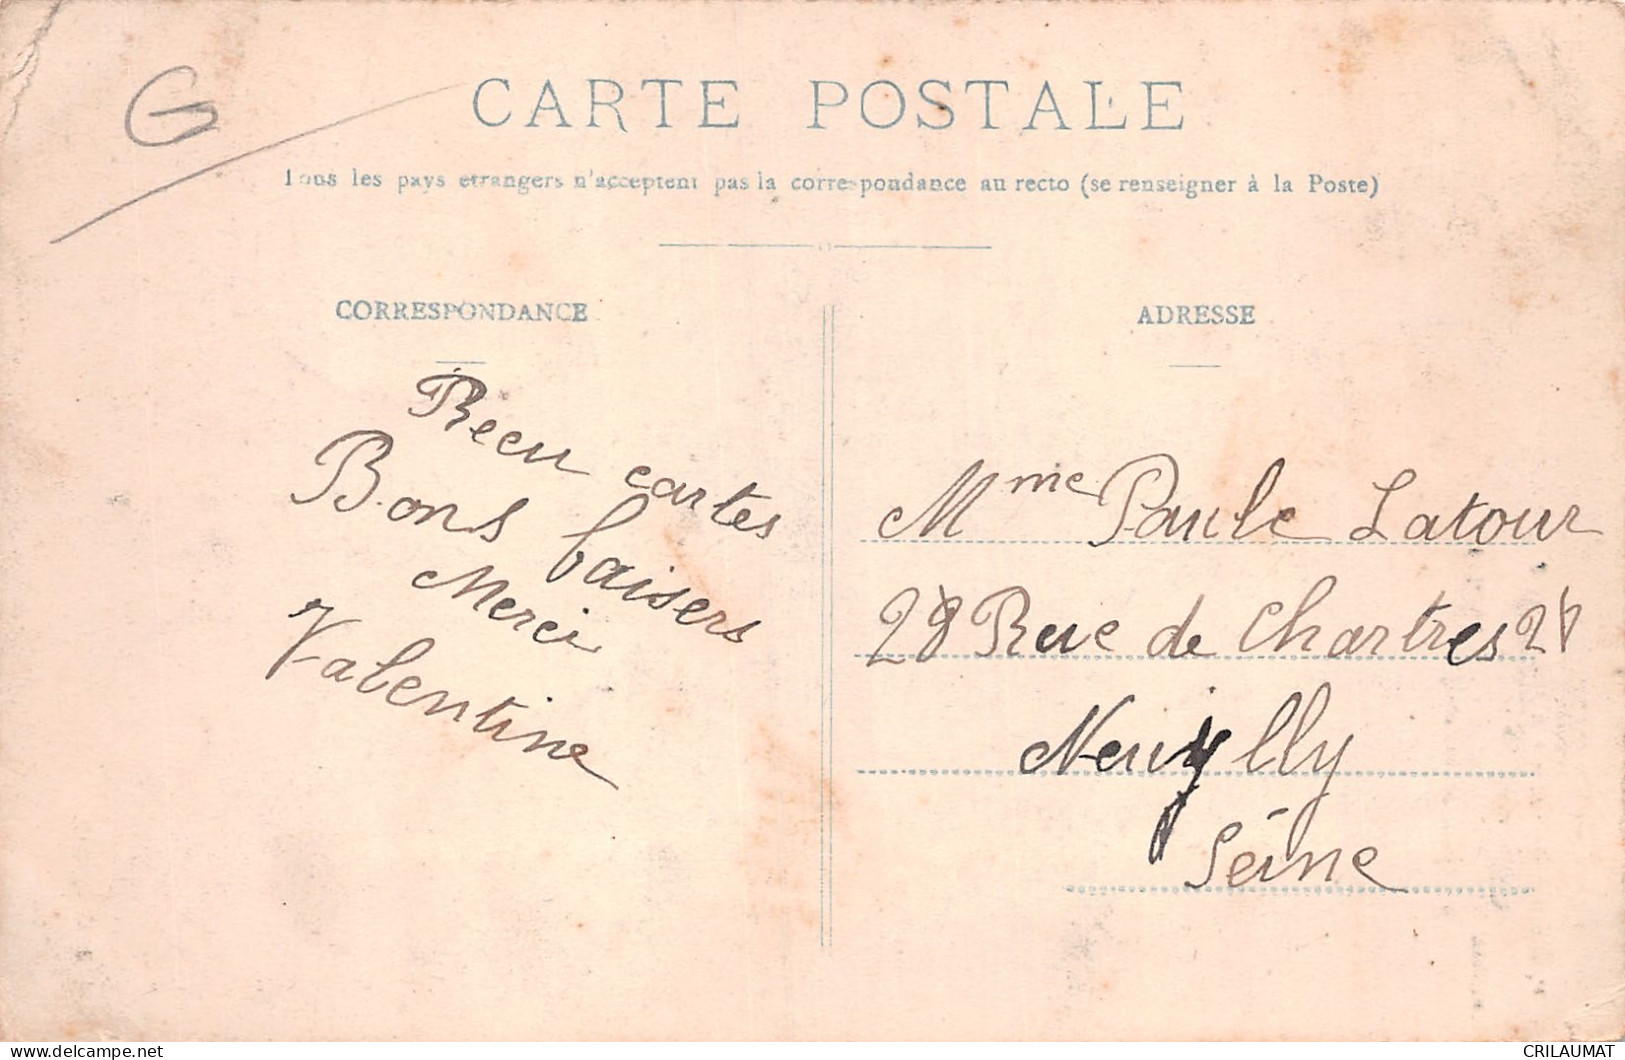 G
CARTE POSTALE
Tous les pays etrangers n'acceptent pas la correspondance au recto (se renseigner à la Poste)
CORRESPONDANCE
Recu cartes
Bons baisers
Merci
Valentine
ADRESSE
Mme Paule Latour
28 Rue de Chartres 28
Neuilly
Séine
delcampe.net
CRILAUMAT